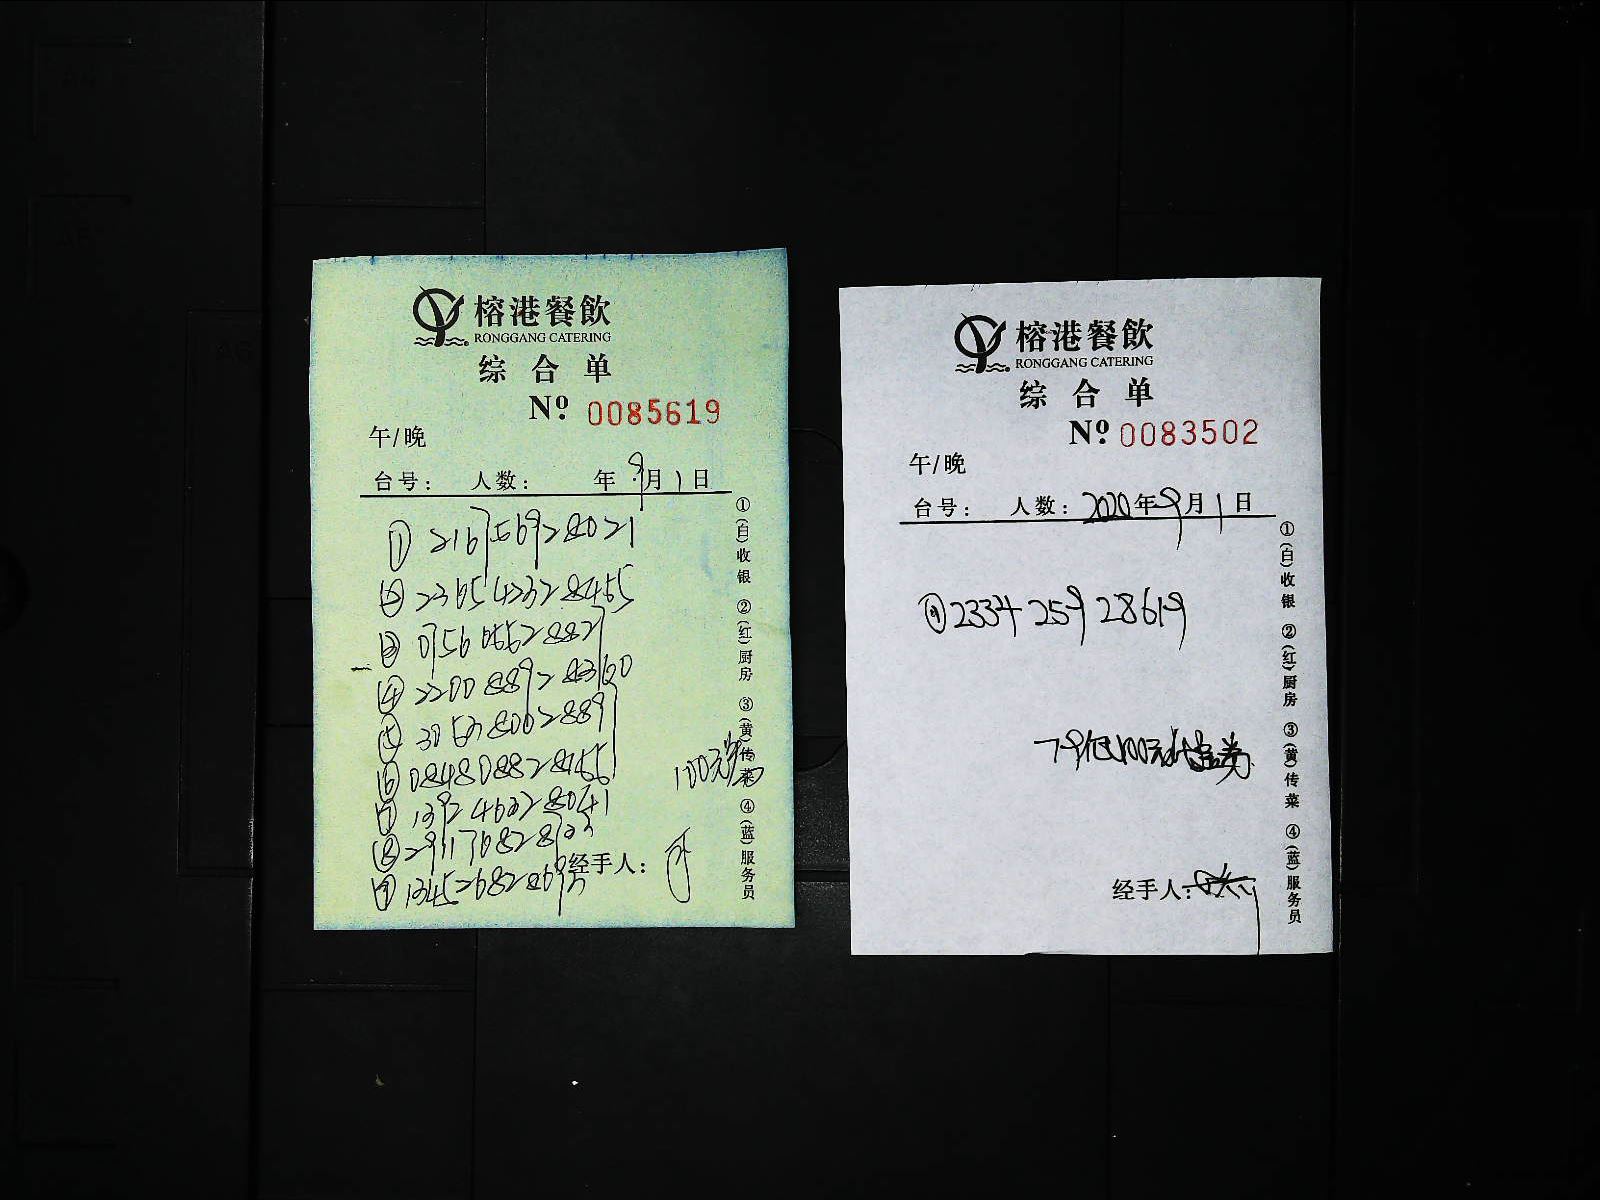 榕港餐飲
RONGGANG CATERING
综合单
Nº 0085619
午/晚
台号： 人数： 年 9月1日
① 216756928021
② 236542328455
③ 075606628821
④ 220088928360
⑥ 084808828455
⑦ 139246328041
⑧ 291176828133
⑨
100元
经手人：
①(白)收银 ②(红)厨房 ③(黄)传菜 ④(蓝)服务员
榕港餐飲
RONGGANG CATERING
综合单
Nº 0083502
午/晚
台号： 人数： 2020年9月1日
① 233425928619
经手人：
①(白)收银 ②(红)厨房 ③(黄)传菜 ④(蓝)服务员